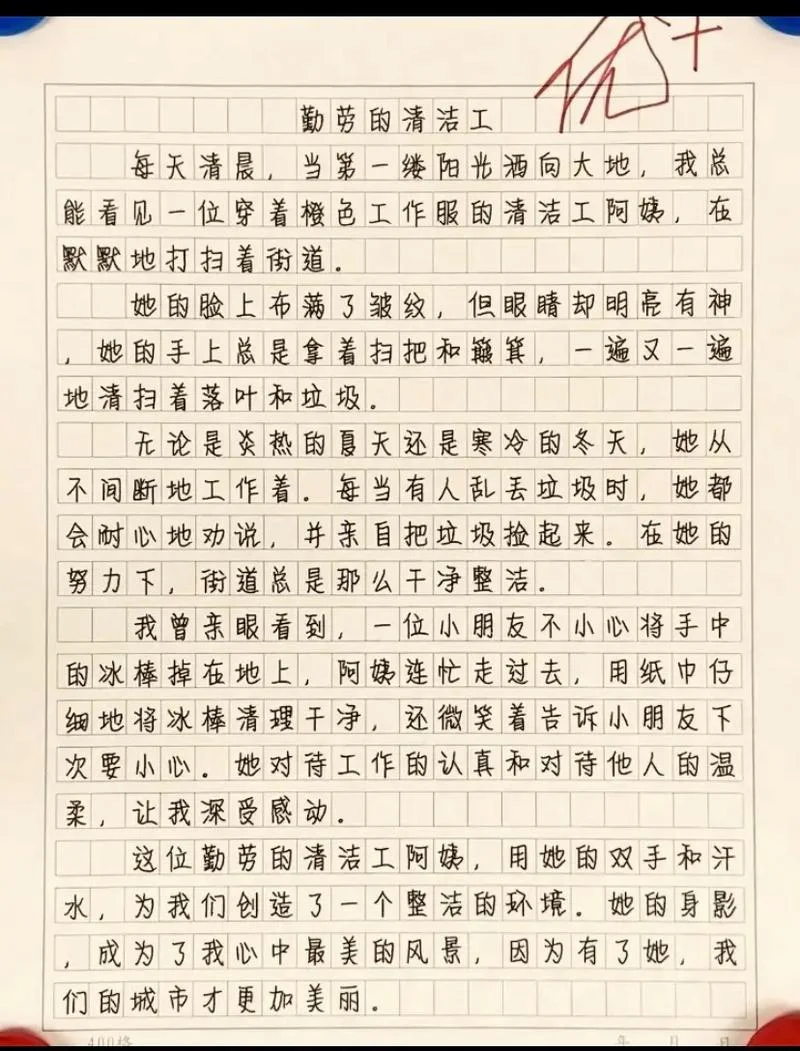 优+
勤劳的清洁工
每天清晨，当第一缕阳光洒向大地，我总
能看见一位穿着橙色工作服的清洁工阿姨，在
默默地打扫着街道。
她的脸上布满了皱纹，但眼睛却明亮有神
，她的手上总是拿着扫把和簸箕，一遍又一遍
地清扫着落叶和垃圾。
无论是炎热的夏天还是寒冷的冬天，她从
不间断地工作着。每当有人乱丢垃圾时，她都
会耐心地劝说，并亲自把垃圾捡起来。在她的
努力下，街道总是那么干净整洁。
我曾亲眼看到，一位小朋友不小心将手中
的冰棒掉在地上，阿姨连忙走过去，用纸巾仔
细地将冰棒清理干净，还微笑着告诉小朋友下
次要小心。她对待工作的认真和对待他人的温
柔，让我深受感动。
这位勤劳的清洁工阿姨，用她的双手和汗
水，为我们创造了一个整洁的环境。她的身影
，成为了我心中最美的风景，因为有了她，我
们的城市才更加美丽。
400格 年 月 日